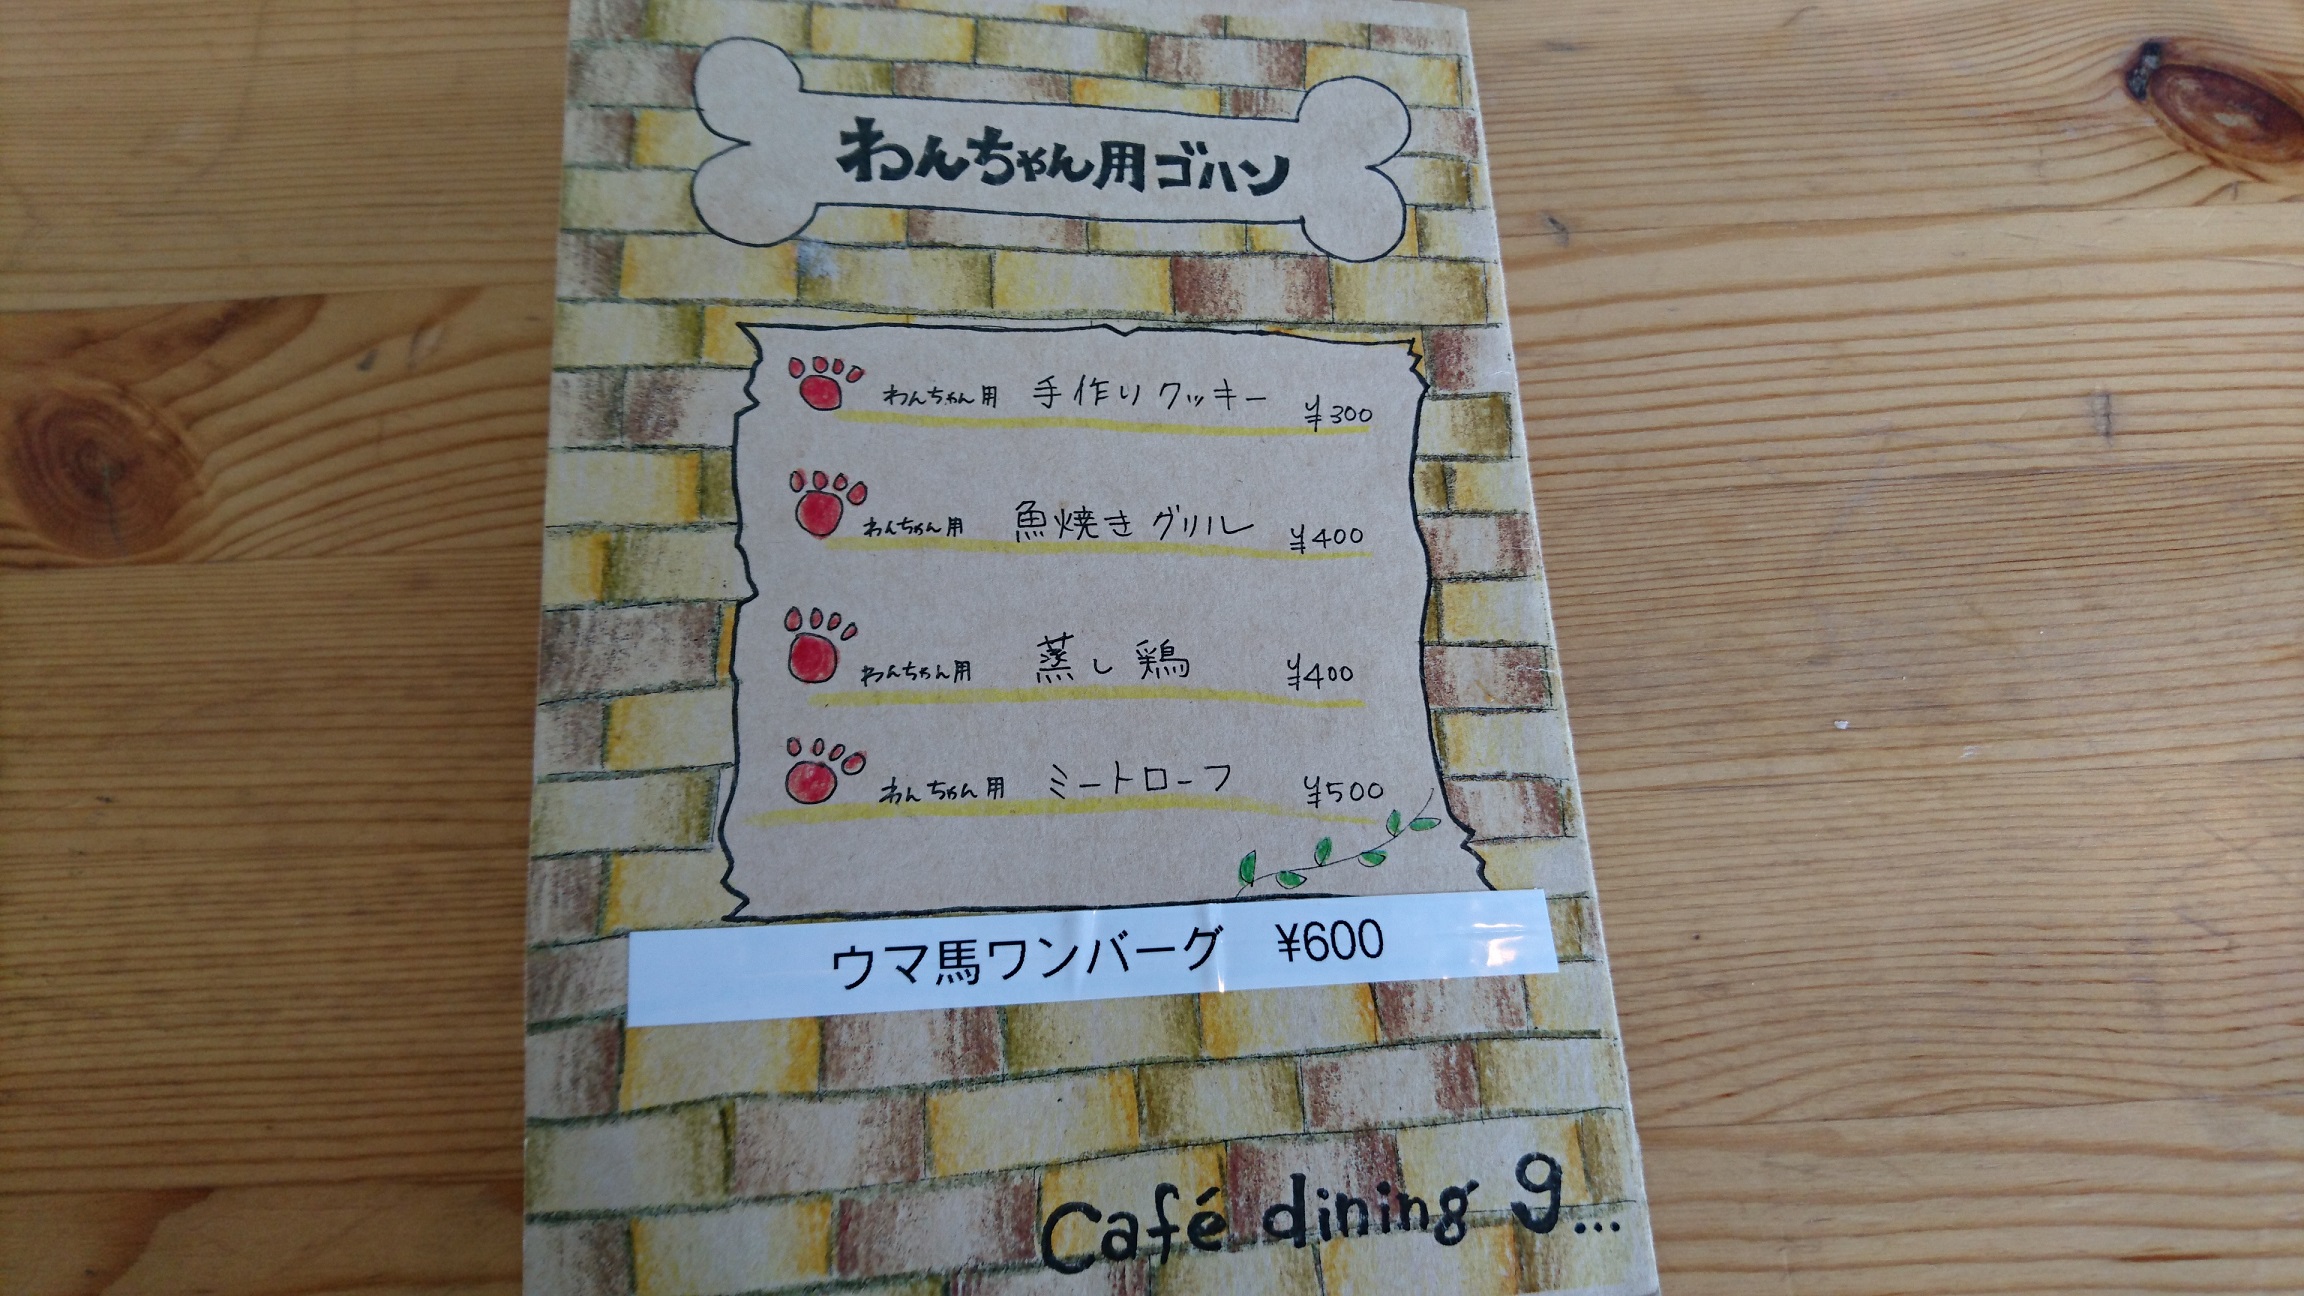 わんちゃん用ゴハン
わんちゃん用 手作りクッキー ¥300
わんちゃん用 魚焼きグリル ¥400
わんちゃん用 蒸し鶏 ¥400
わんちゃん用 ミートローフ ¥500
ウマ馬ワンバーグ ¥600
Café dining 9...